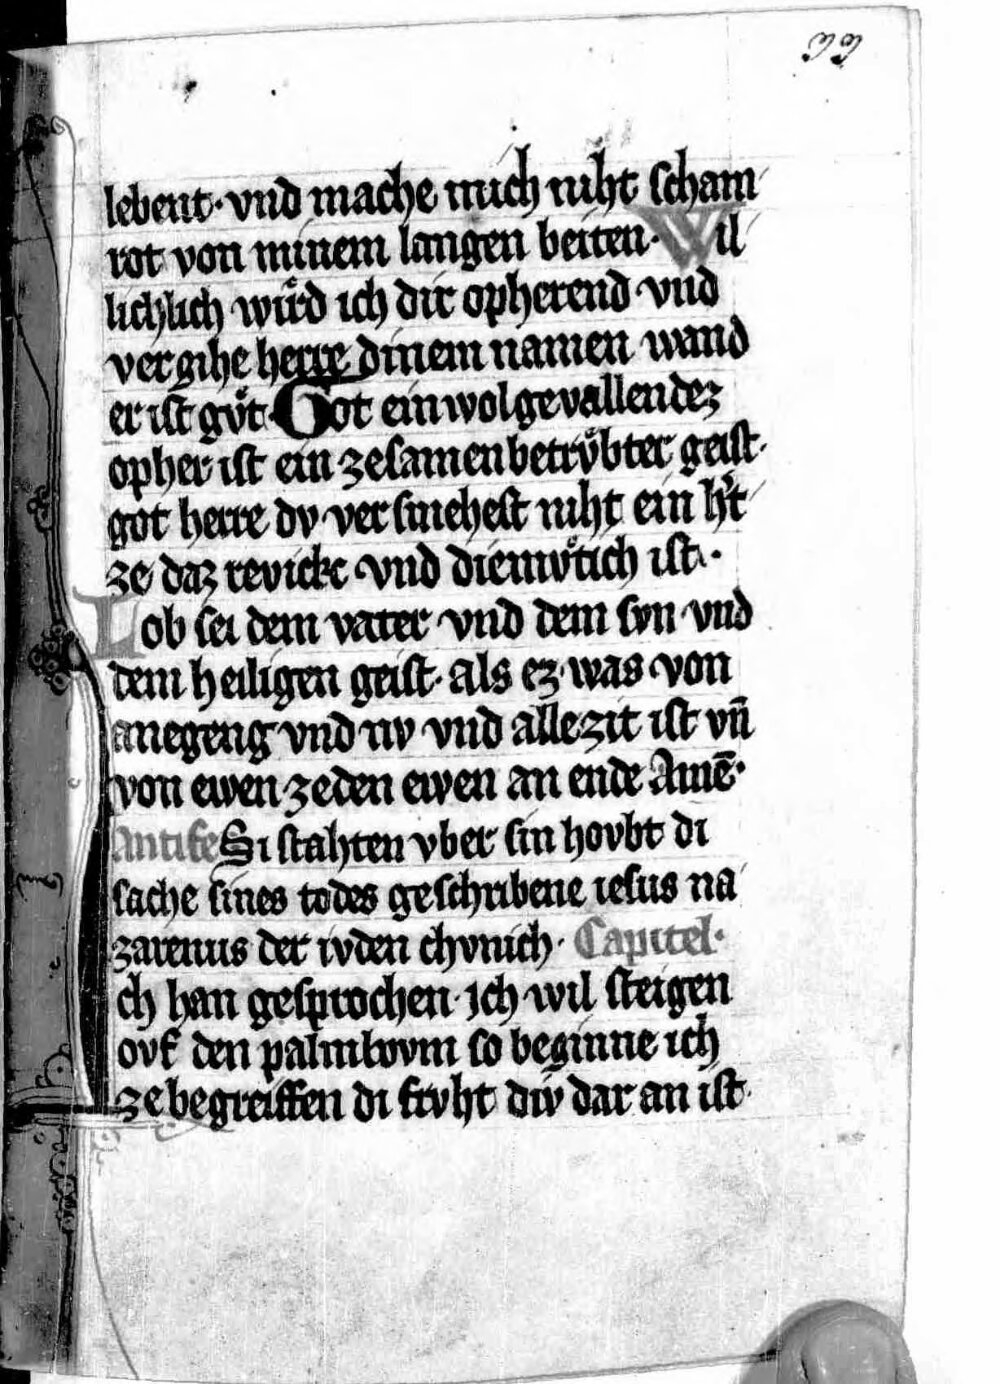 33
lebent· vnd mache mich niht scham
rot von minem langen beiten· Wil
lichlich wuͤrd ich dir opherend vnd
vergihe herre dinem namen wand
er ist guͦt· Got ein wolgevallendez
opher ist ein zesamenbetrvͤbter geist·
got herre dv versmehest niht ein h't
ze daz revickc vnd diemvͤtich ist·
Lob sei dem vater vnd dem svn vnd
dem heiligen geist· als ez was von
anegeng vnd nv vnd allezit ist vn̄
von ewen zeden ewen an ende Amē·
Antife Si stahten vber sin hovbt di
sache sines todes geschribene iesus na
zarenus der ivden chvnich· Capitel·
ch han gesprochen· ich wil steigen
ovf den palmbovm so beginne ich
ze begreiffen di frvht div dar an ist·